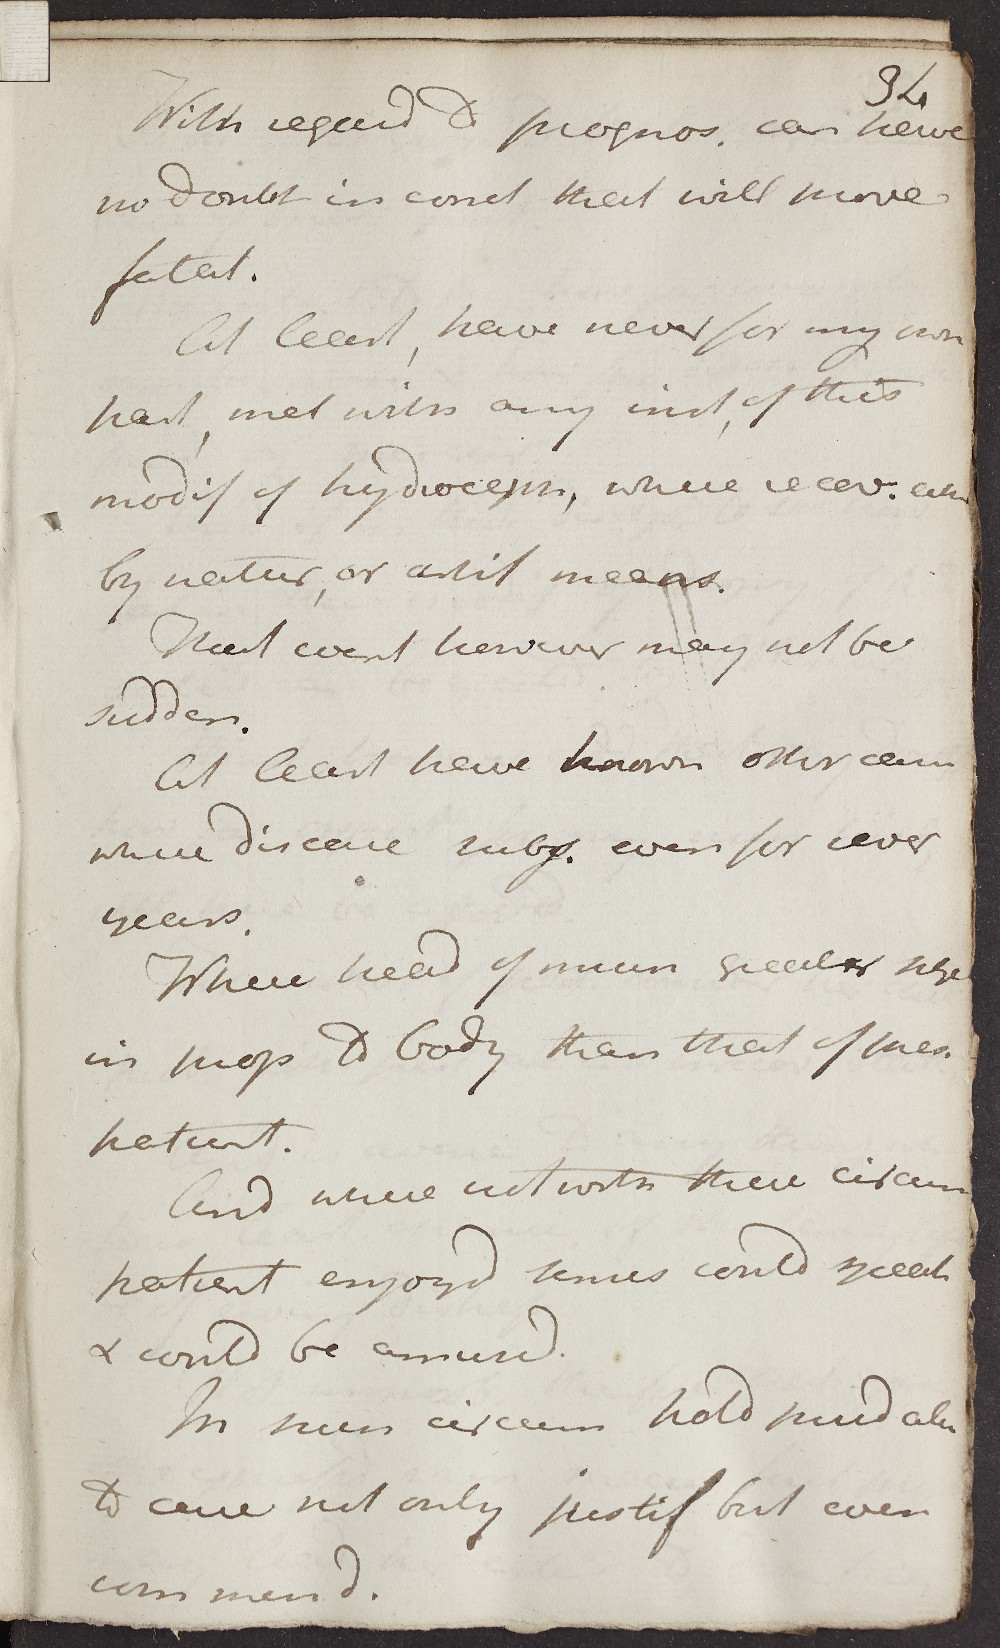 34
With regard to prognos. can have
no doubt in concl that will prove
fatal.
At least, have never for my own
part, met with any inst, of this
modif of hydroceph, where recov.
by natur, or artif means.
That event however may not be
sudden.
At least have known other
where disease subs. even for sever
years.
Where head of much greater size
in prop to body than that of pres.
patient.
And where notwith these circum
patient enjoyd senses could speak
& could be amusd.
In such circum hold
to not only justif but even
commend.